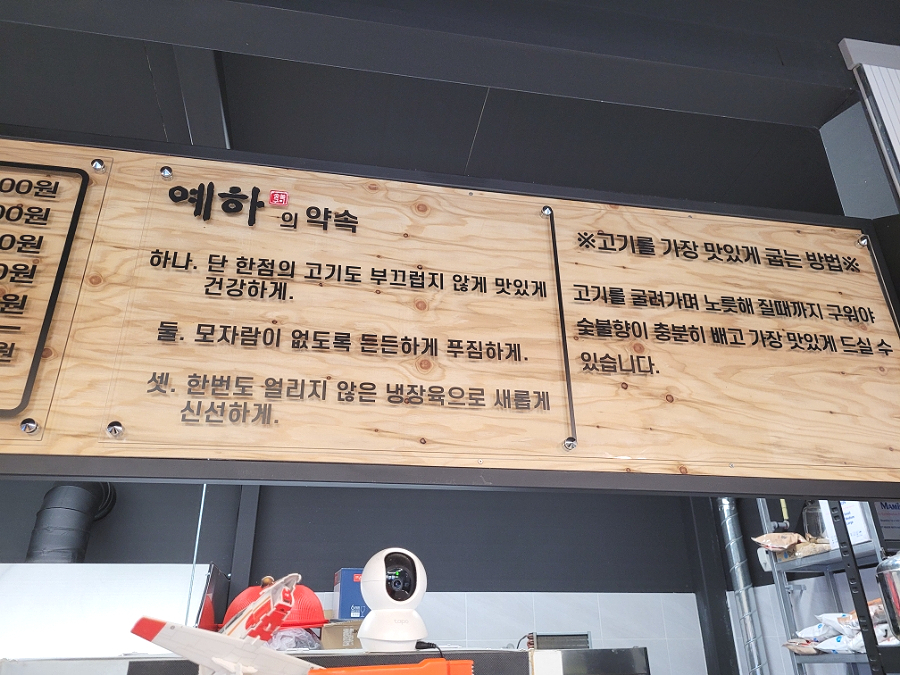 00원
00원
0원
0원
원
원
예하의 약속
하나. 단 한점의 고기도 부끄럽지 않게 맛있게
건강하게.
둘. 모자람이 없도록 든든하게 푸짐하게.
셋. 한번도 얼리지 않은 냉장육으로 새롭게
신선하게.
※고기를 가장 맛있게 굽는 방법※
고기를 굴려가며 노릇해 질때까지 구워야
숯불향이 충분히 배고 가장 맛있게 드실 수
있습니다.